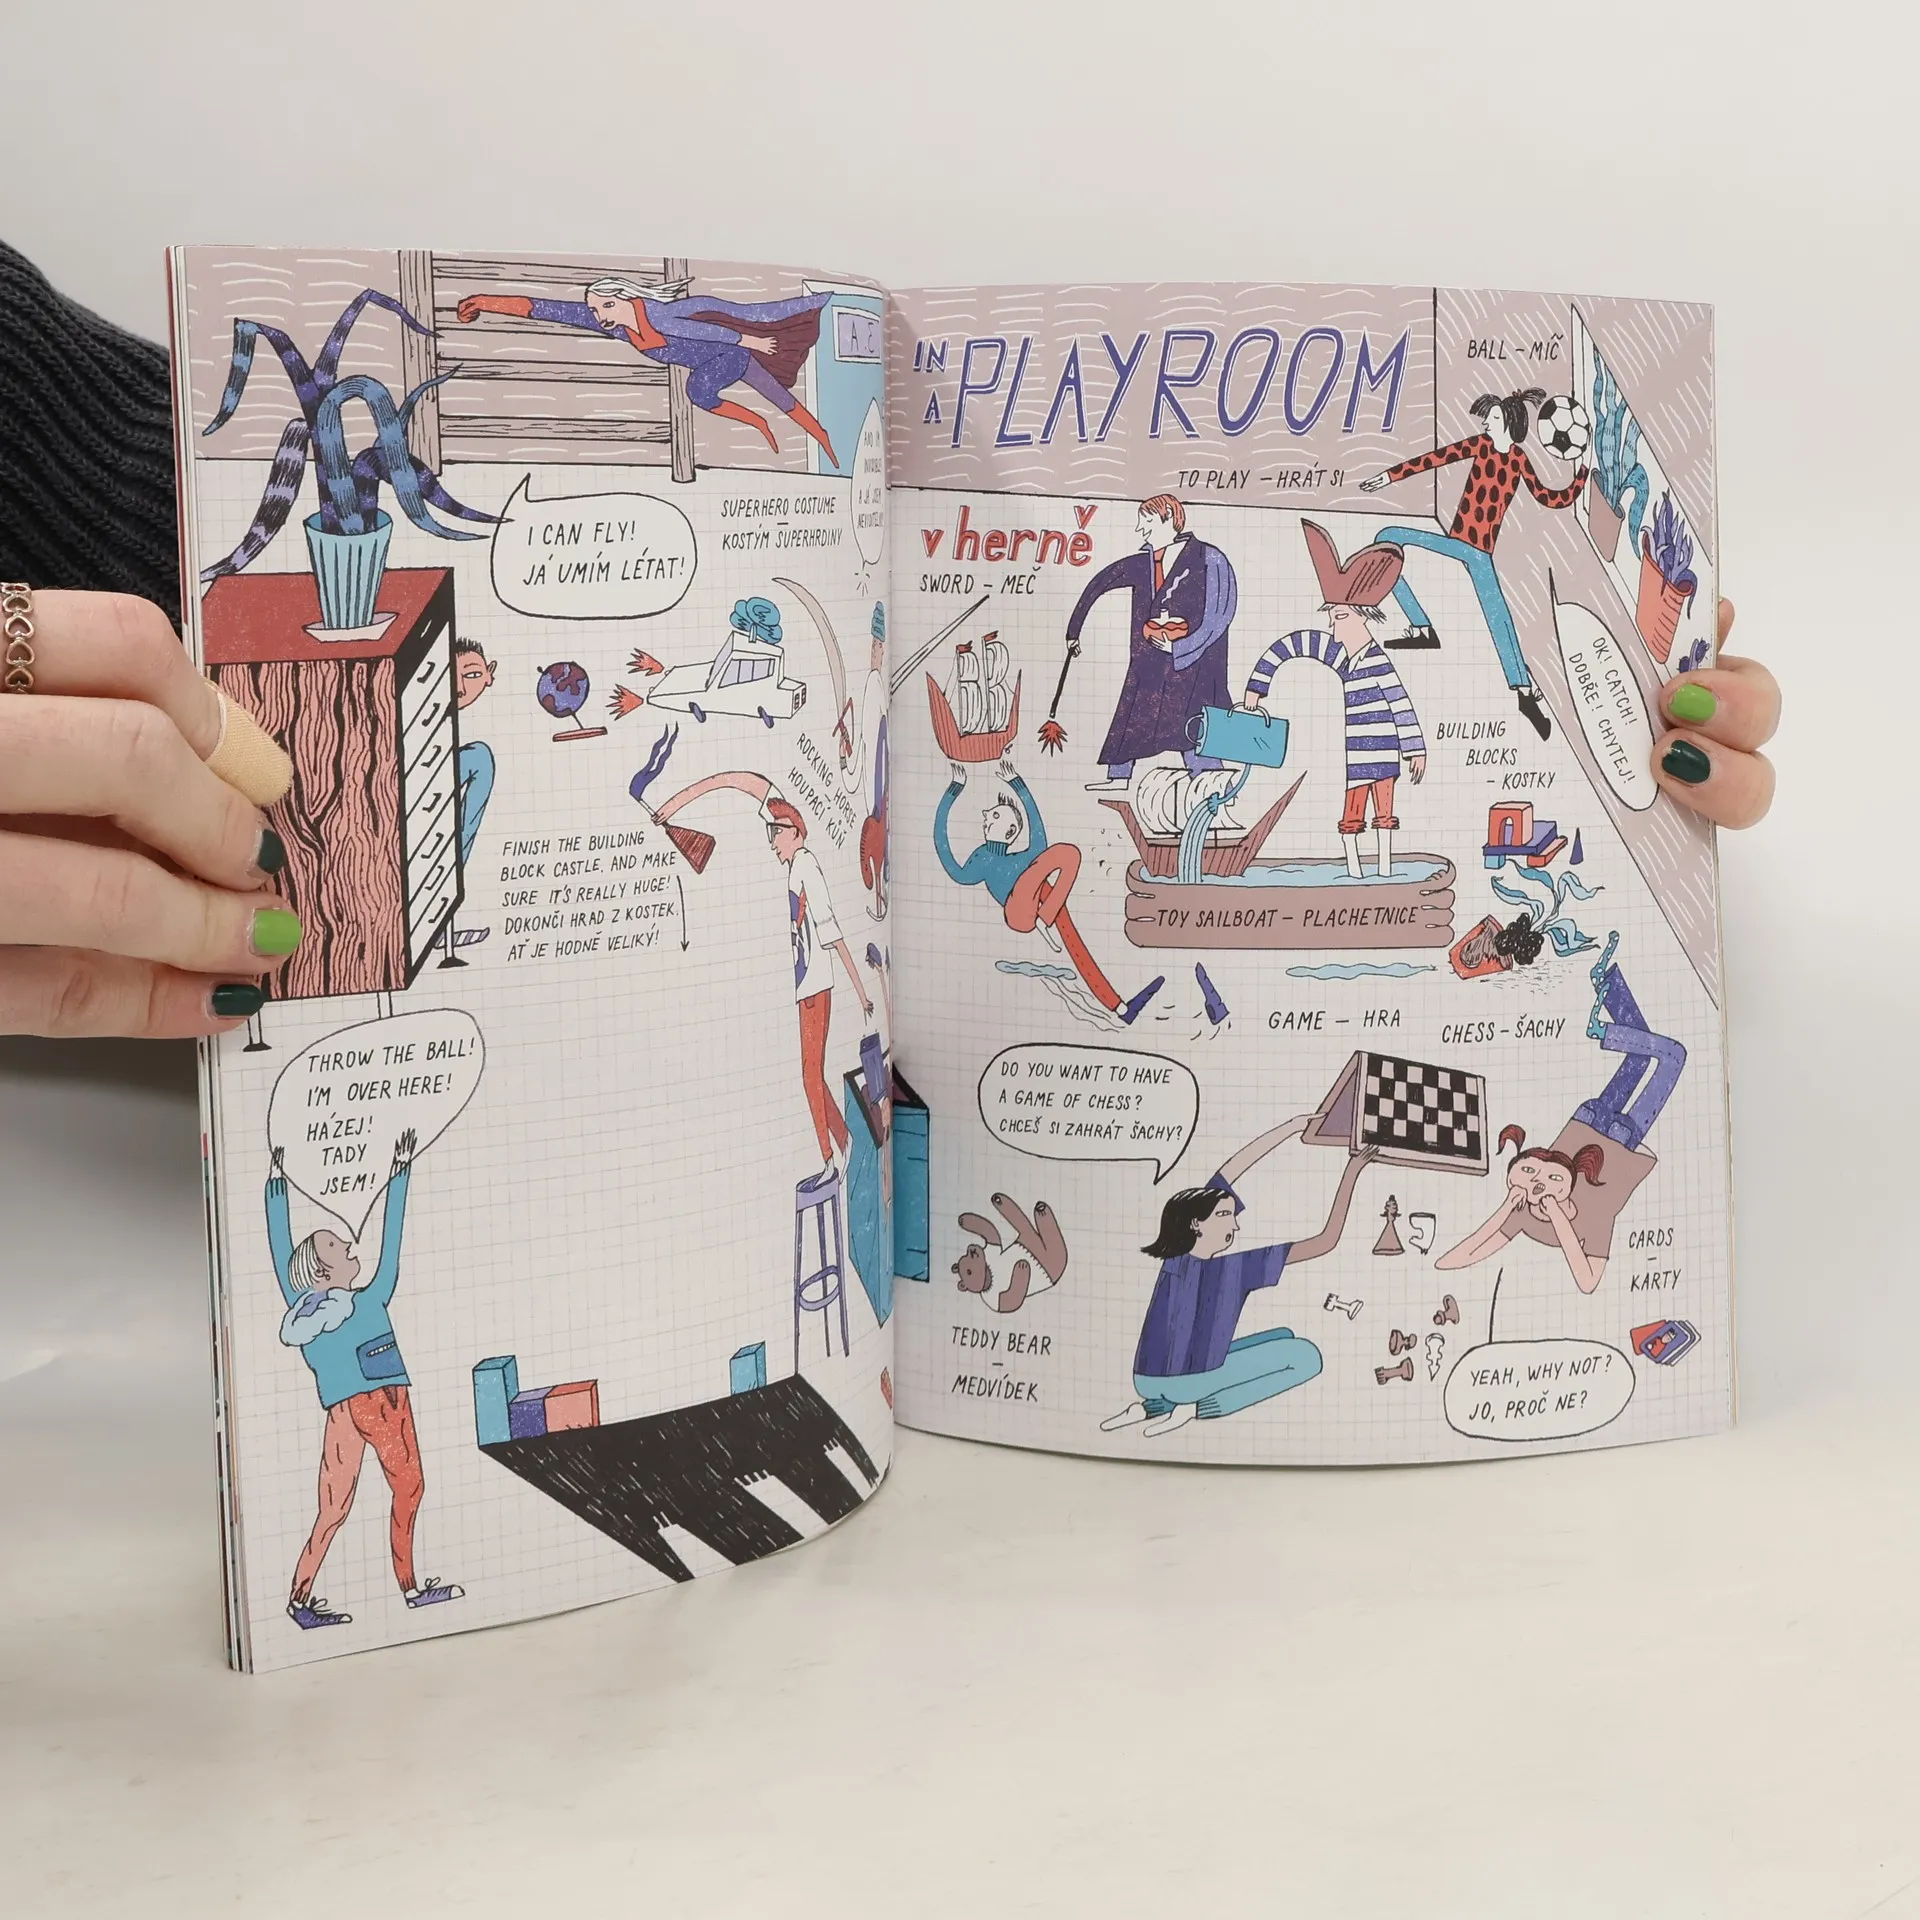 A E
I CAN FLY!
JÁ UMÍM LÉTAT!
SUPERHERO COSTUME
–
KOSTÝM SUPERHRDINY
AND I'M
A JÁ JSEM
ROCKING HORSE
–
HOUPACÍ KŮŇ
FINISH THE BUILDING
BLOCK CASTLE, AND MAKE
SURE IT'S REALLY HUGE!
DOKONČI HRAD Z KOSTEK,
AŤ JE HODNĚ VELIKÝ!
THROW THE BALL!
I'M OVER HERE!
HÁZEJ!
TADY
JSEM!
IN
A PLAYROOM
TO PLAY – HRÁT SI
BALL – MÍČ
v herně
SWORD – MEČ
OK! CATCH!
DOBŘE! CHYTEJ!
BUILDING
BLOCKS
– KOSTKY
TOY SAILBOAT – PLACHETNICE
GAME – HRA
CHESS – ŠACHY
DO YOU WANT TO HAVE
A GAME OF CHESS?
CHCEŠ SI ZAHRÁT ŠACHY?
TEDDY BEAR
–
MEDVÍDEK
CARDS
–
KARTY
YEAH, WHY NOT?
JO, PROČ NE?